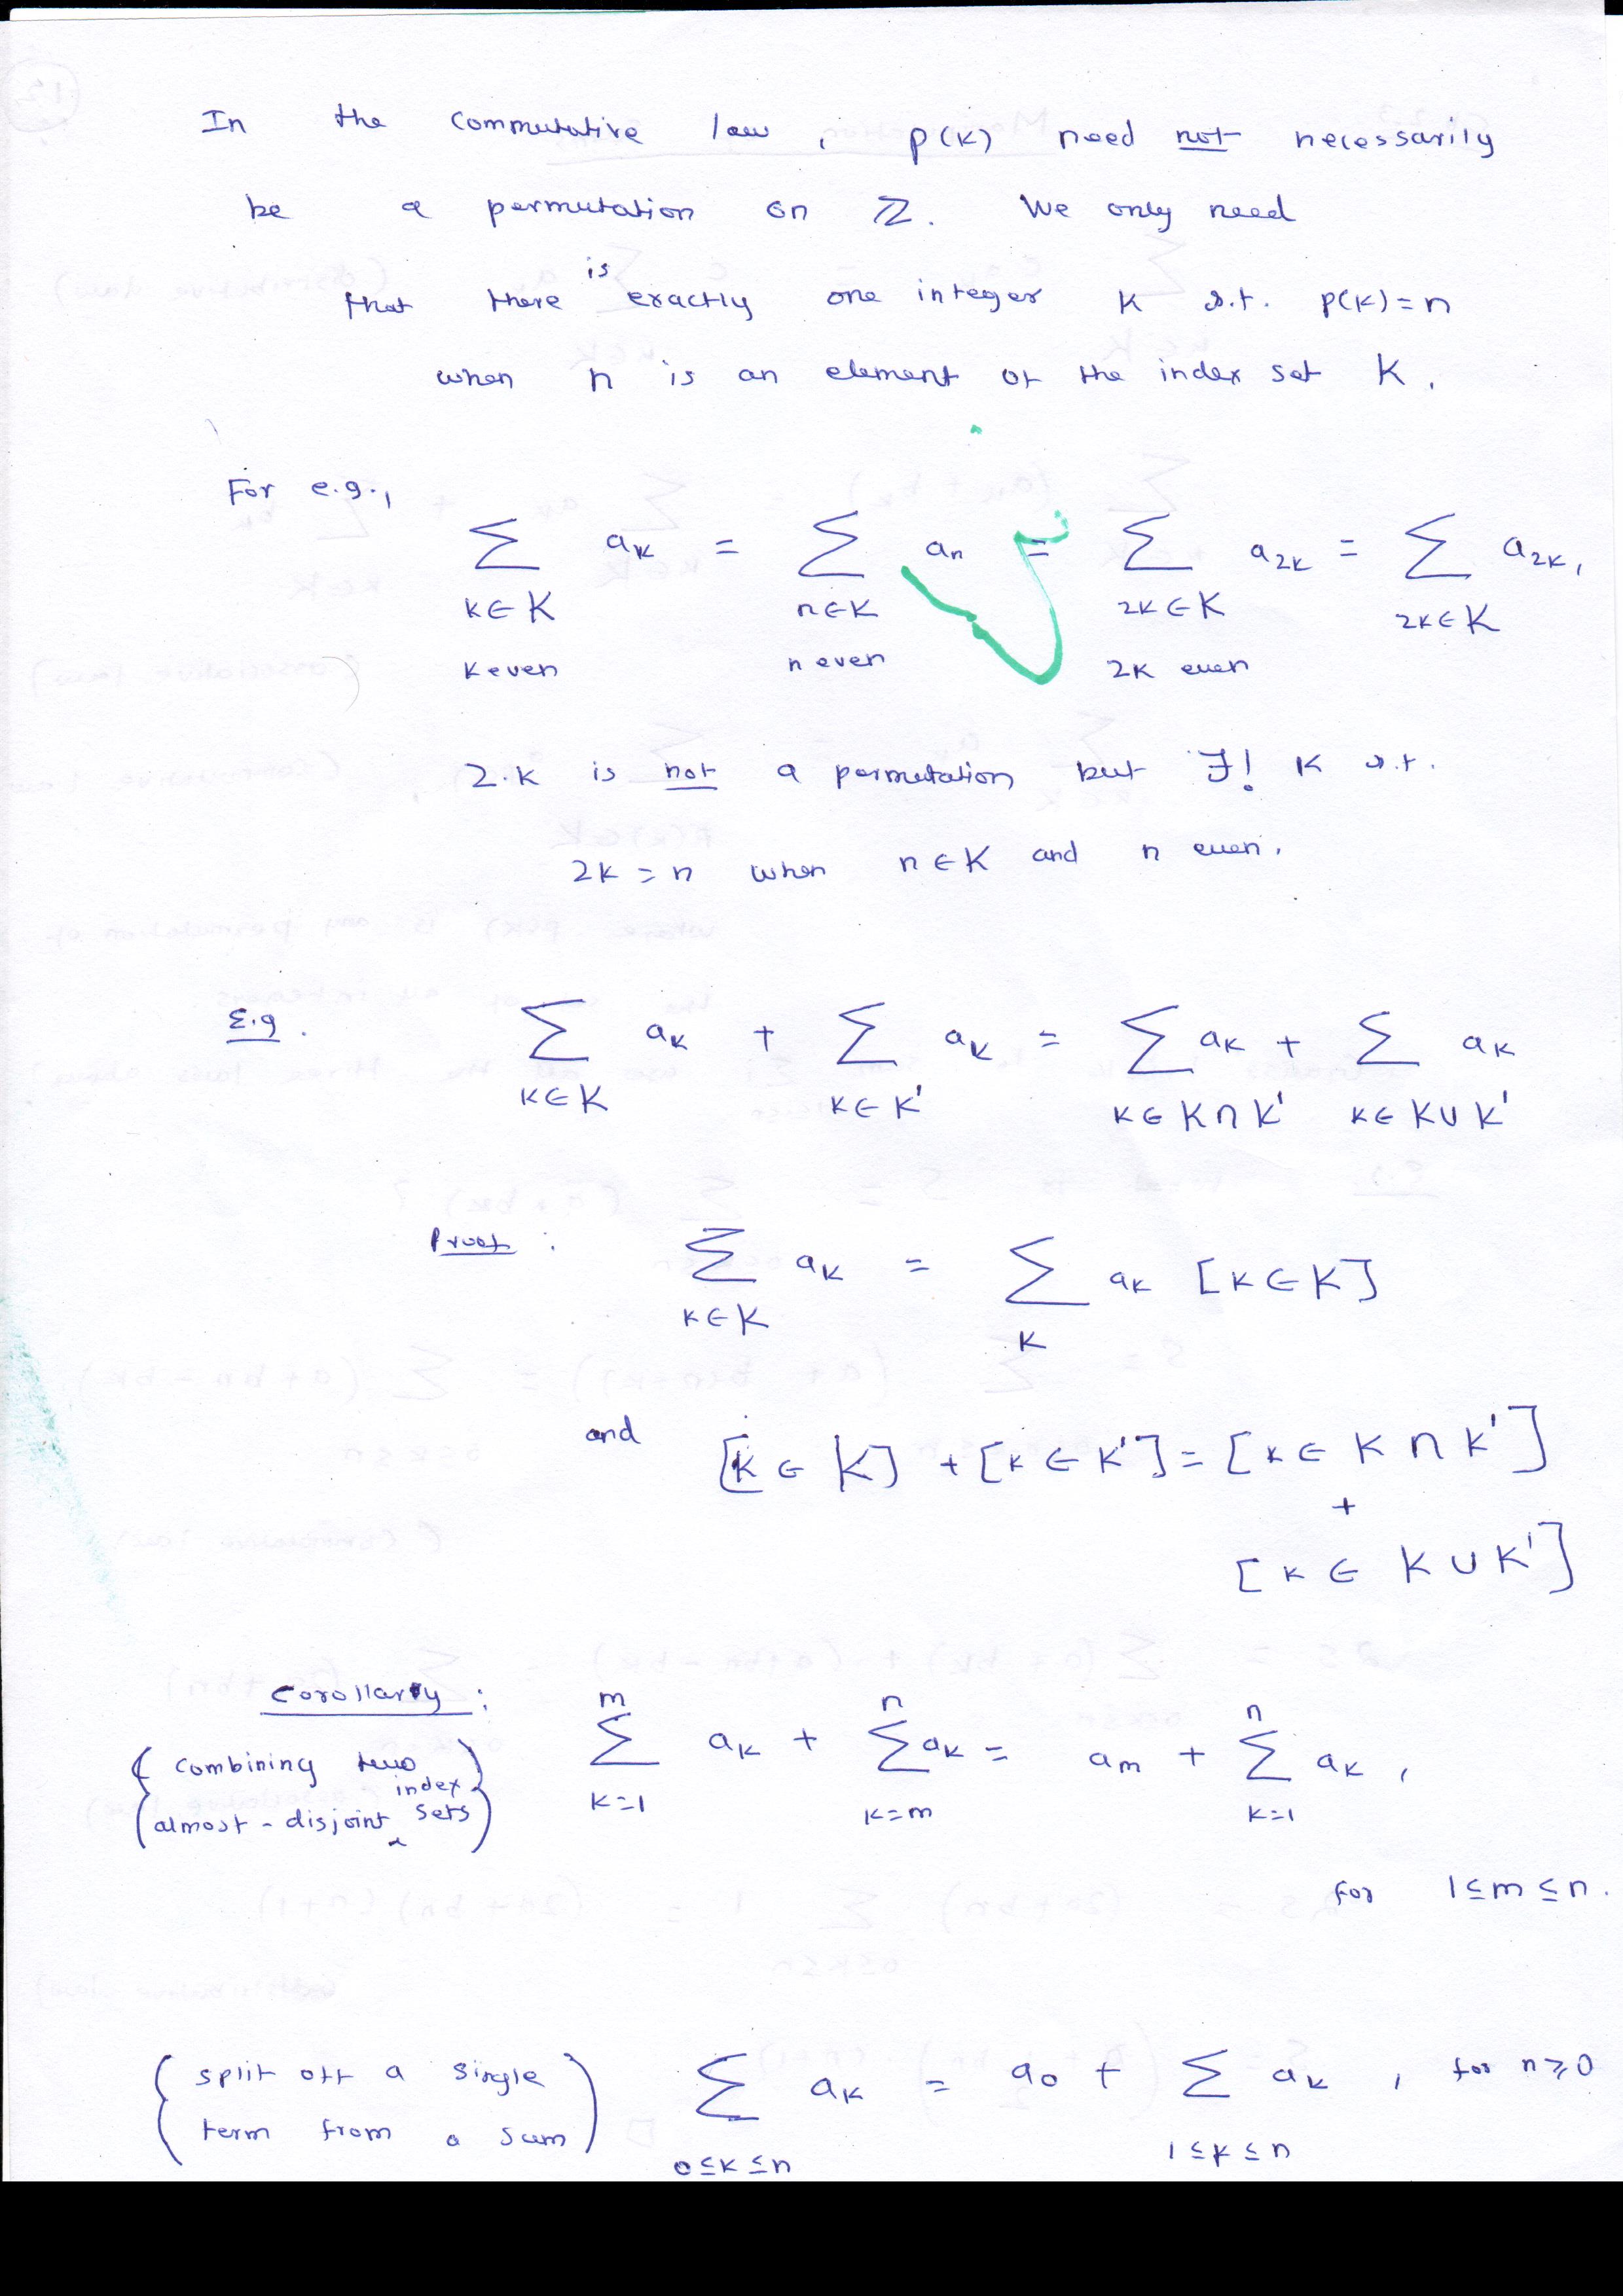 In the commutative law, p(k) need not necessarily
be a permutation on ℤ. We only need
that there is exactly one integer k s.t. p(k)=n
when n is an element of the index set K.
For e.g.,
∑_{k∈K, k even} a_k = ∑_{n∈K, n even} a_n = ∑_{2k∈K, 2k even} a_{2k} = ∑_{2k∈K} a_{2k},
2·k is not a permutation but ∃! k s.t.
2k = n when n∈K and n even.
E.g. ∑_{k∈K} a_k + ∑_{k∈K'} a_k = ∑_{k∈K∩K'} a_k + ∑_{k∈K∪K'} a_k
Proof: ∑_{k∈K} a_k = ∑_k a_k [k∈K]
and [k∈K] + [k∈K'] = [k∈K∩K']
+
[k∈K∪K']
Corollary: ∑_{k=1}^{m} a_k + ∑_{k=m}^{n} a_k = a_m + ∑_{k=1}^{n} a_k,
(combining two
almost-disjoint index sets)
for 1≤m≤n.
(split off a single
term from a sum) ∑_{0≤k≤n} a_k = a_0 + ∑_{1≤k≤n} a_k, for n≥0